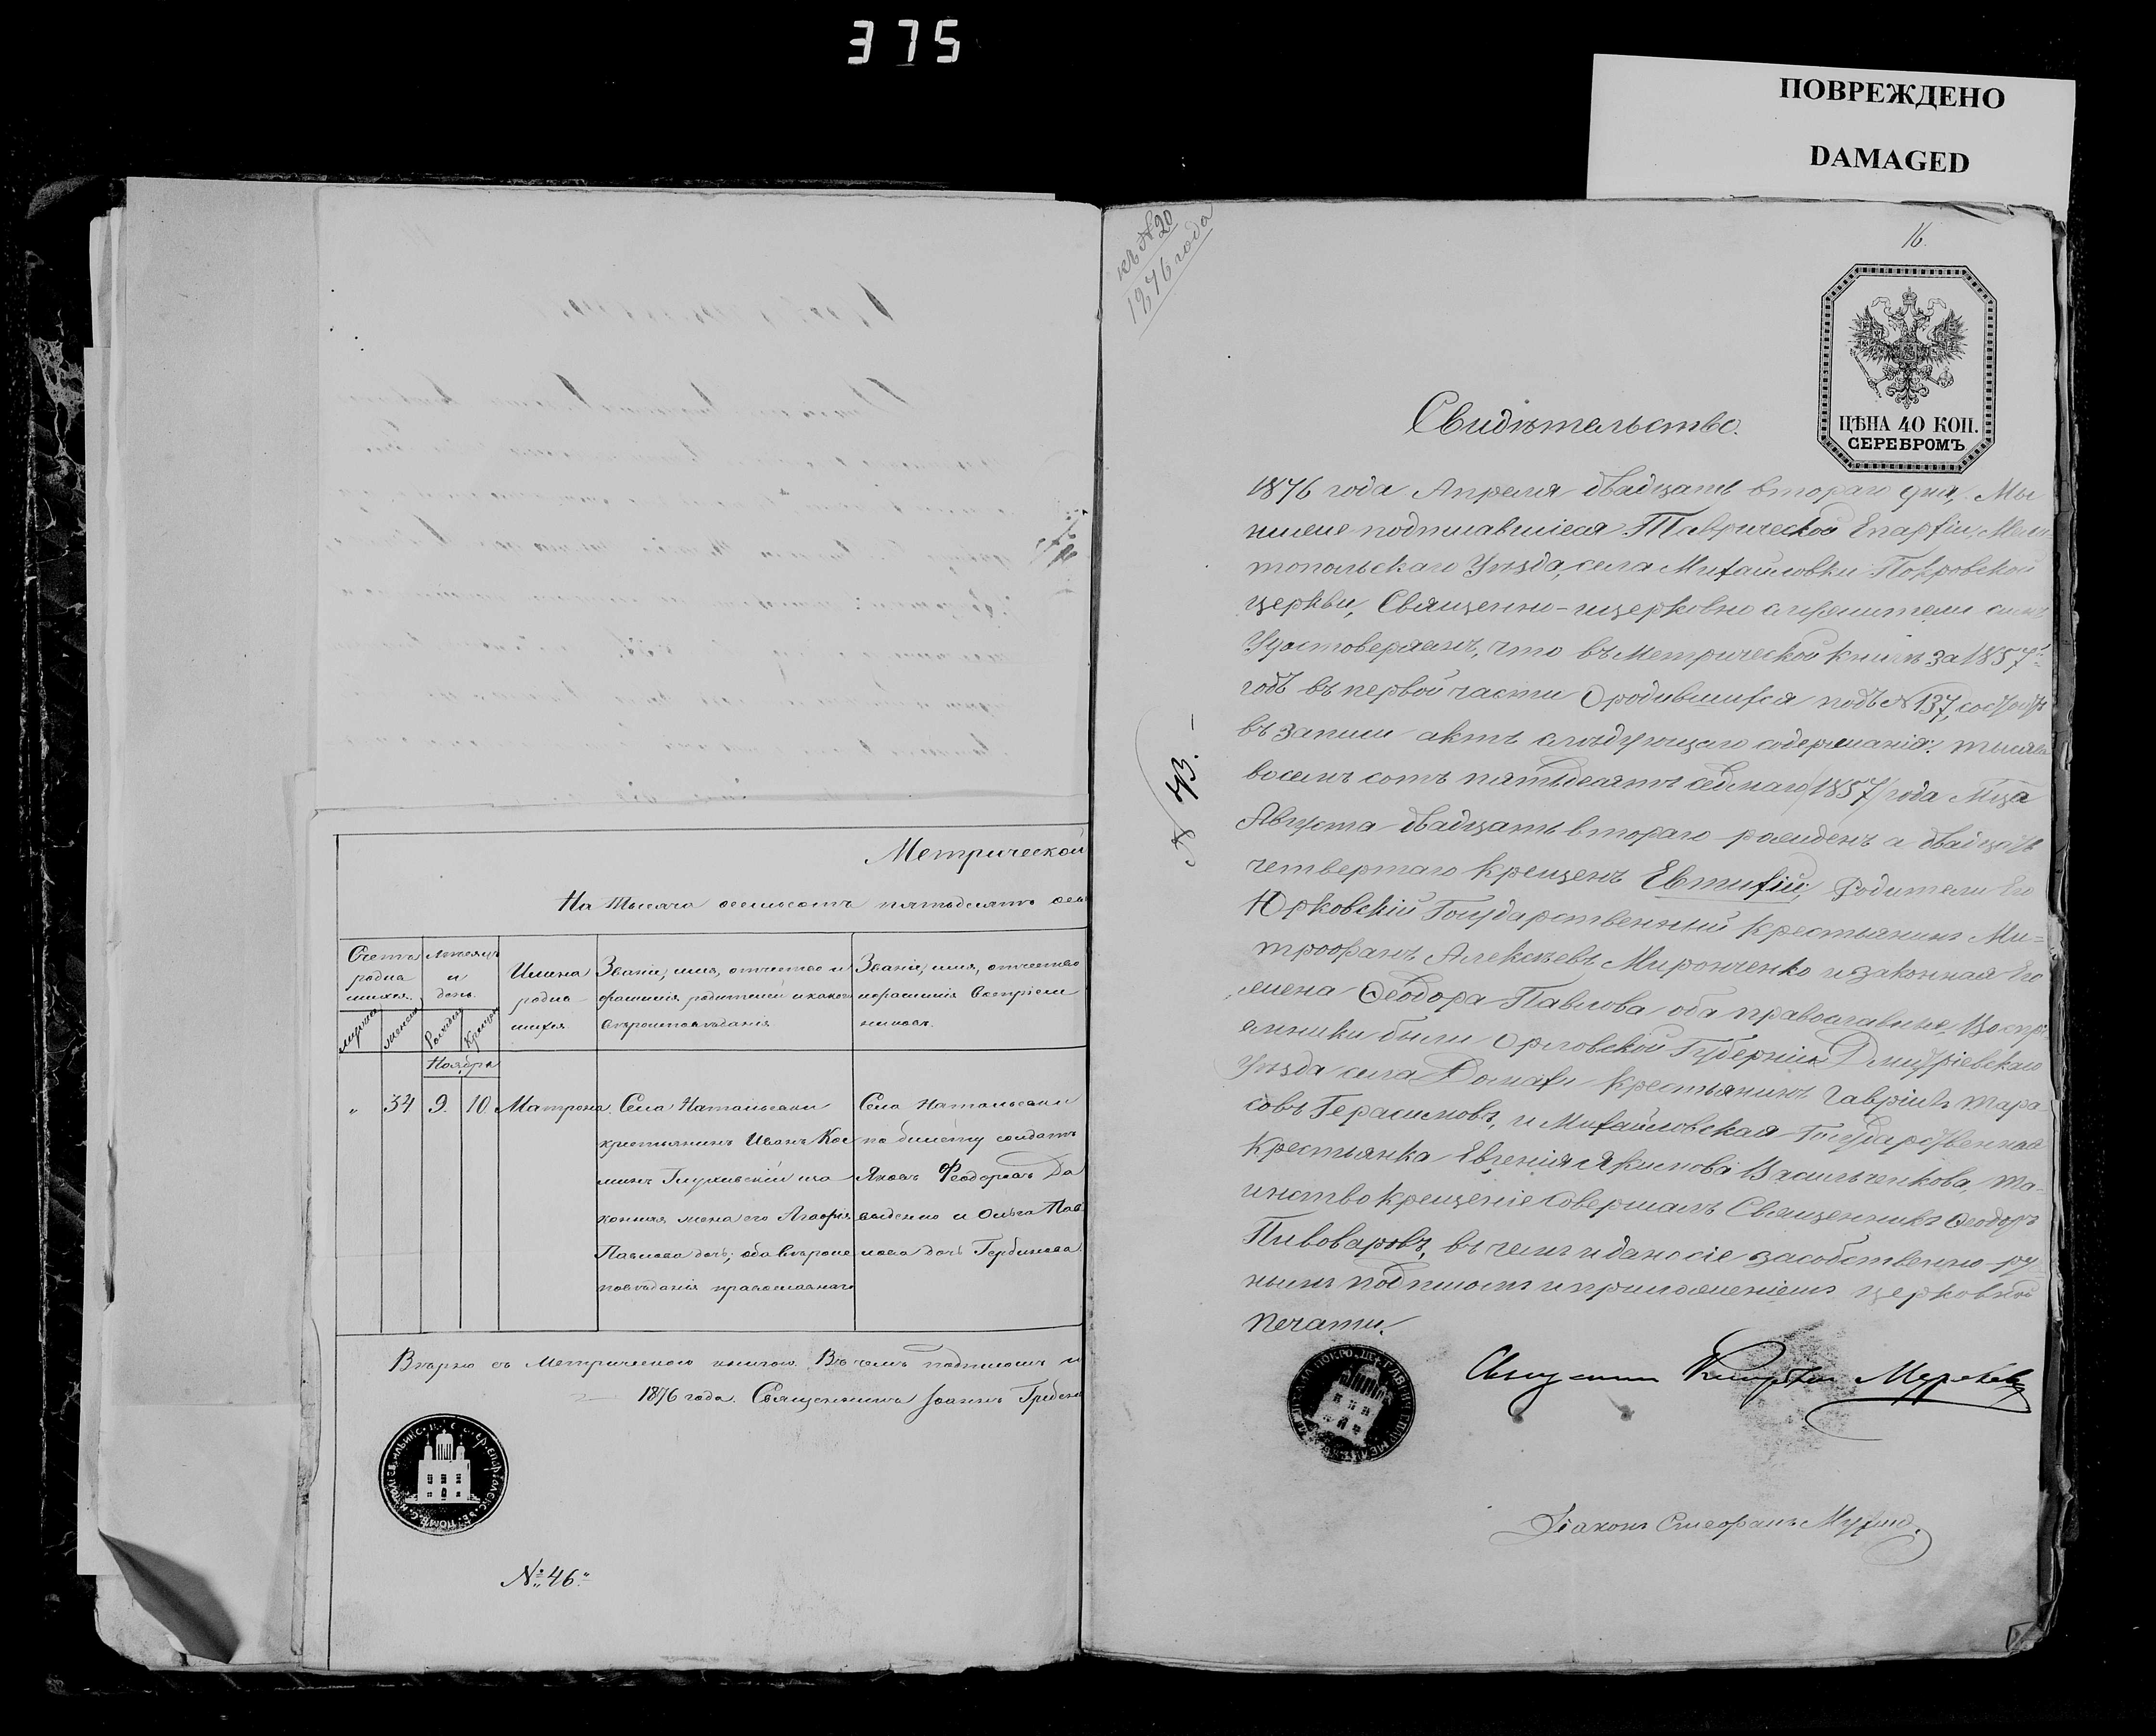 375
ПОВРЕЖДЕНО
DAMAGED
Метрической
На Тысяча восемьсотъ пятьдесятъ
Счетъ родившихся.
мужска
женска
Мѣсяцъ и день.
Рожденія
Крещенія
Имена родившихся
Званіе, имя, отчество и фамилія родителей и какого вѣроисповѣданія
Званіе, имя, отчество и фамилія воспріемниковъ.
Ноября
„ 34 9. 10. Матрона.
Села Натальевки
крестьянинъ Иванъ Кос
минъ Глуховскій и за
конная жена его Агафія
Павлова дочь; оба вѣроис
повѣданія православнаго
Села Натальевки
по билету солдатъ
Яковъ Феодоровъ Да
выденко и Ольга Пав
лова дочь Гербинова.
Вѣрно съ Метрическою книгою. Въ чемъ подписомъ и
1876 года. Священникъ Іоаннъ
№ 46.
къ № 20
1876 года
16.
ЦѢНА 40 КОП.
СЕРЕБРОМЪ
Свидѣтельство.
№ 43.
1876 года Апреля двадцать втораго дня, Мы
ниже подписавшіеся Таврической Епархіи, Мели
топольскаго Уѣзда, села Михайловки Покровской
церкви, Священно-ицерковно служители симъ
Удостоверяемъ, что въ Метрической книгѣ за 1857й
годъ въ первой части Ородившихся подъ № 137,
въ записи актъ слѣдующаго содержанія: тысяча
восемь сотъ пятьдесятъ седмаго /1857/ года М-ца
Августа двадцать втораго рожденъ а двадцать
четвертаго крещенъ Евтихій, Родители Его
Юрковскій Государственный крестьянинъ Ми=
трофанъ Алексѣевъ Миронченко и законная Его
жена Ѳеодора Павлова оба православные, Воспрі
емники были Орловской Губерніи Дмитріевскаго
Уѣзда села Домахи крестьянинъ Гавріилъ Тара
совъ Герасимовъ, и Михайловская Государственная
Крестьянка Евгенія Якимова Васильченкова, Та-
инство крещеніе Совершалъ Священникъ Ѳеодоръ
Пивоваровъ, въ чемъ и дано сіе засобственно-ру
нымъ подписомъ и приложеніемъ церковной
печати.
Діаконъ Стефанъ